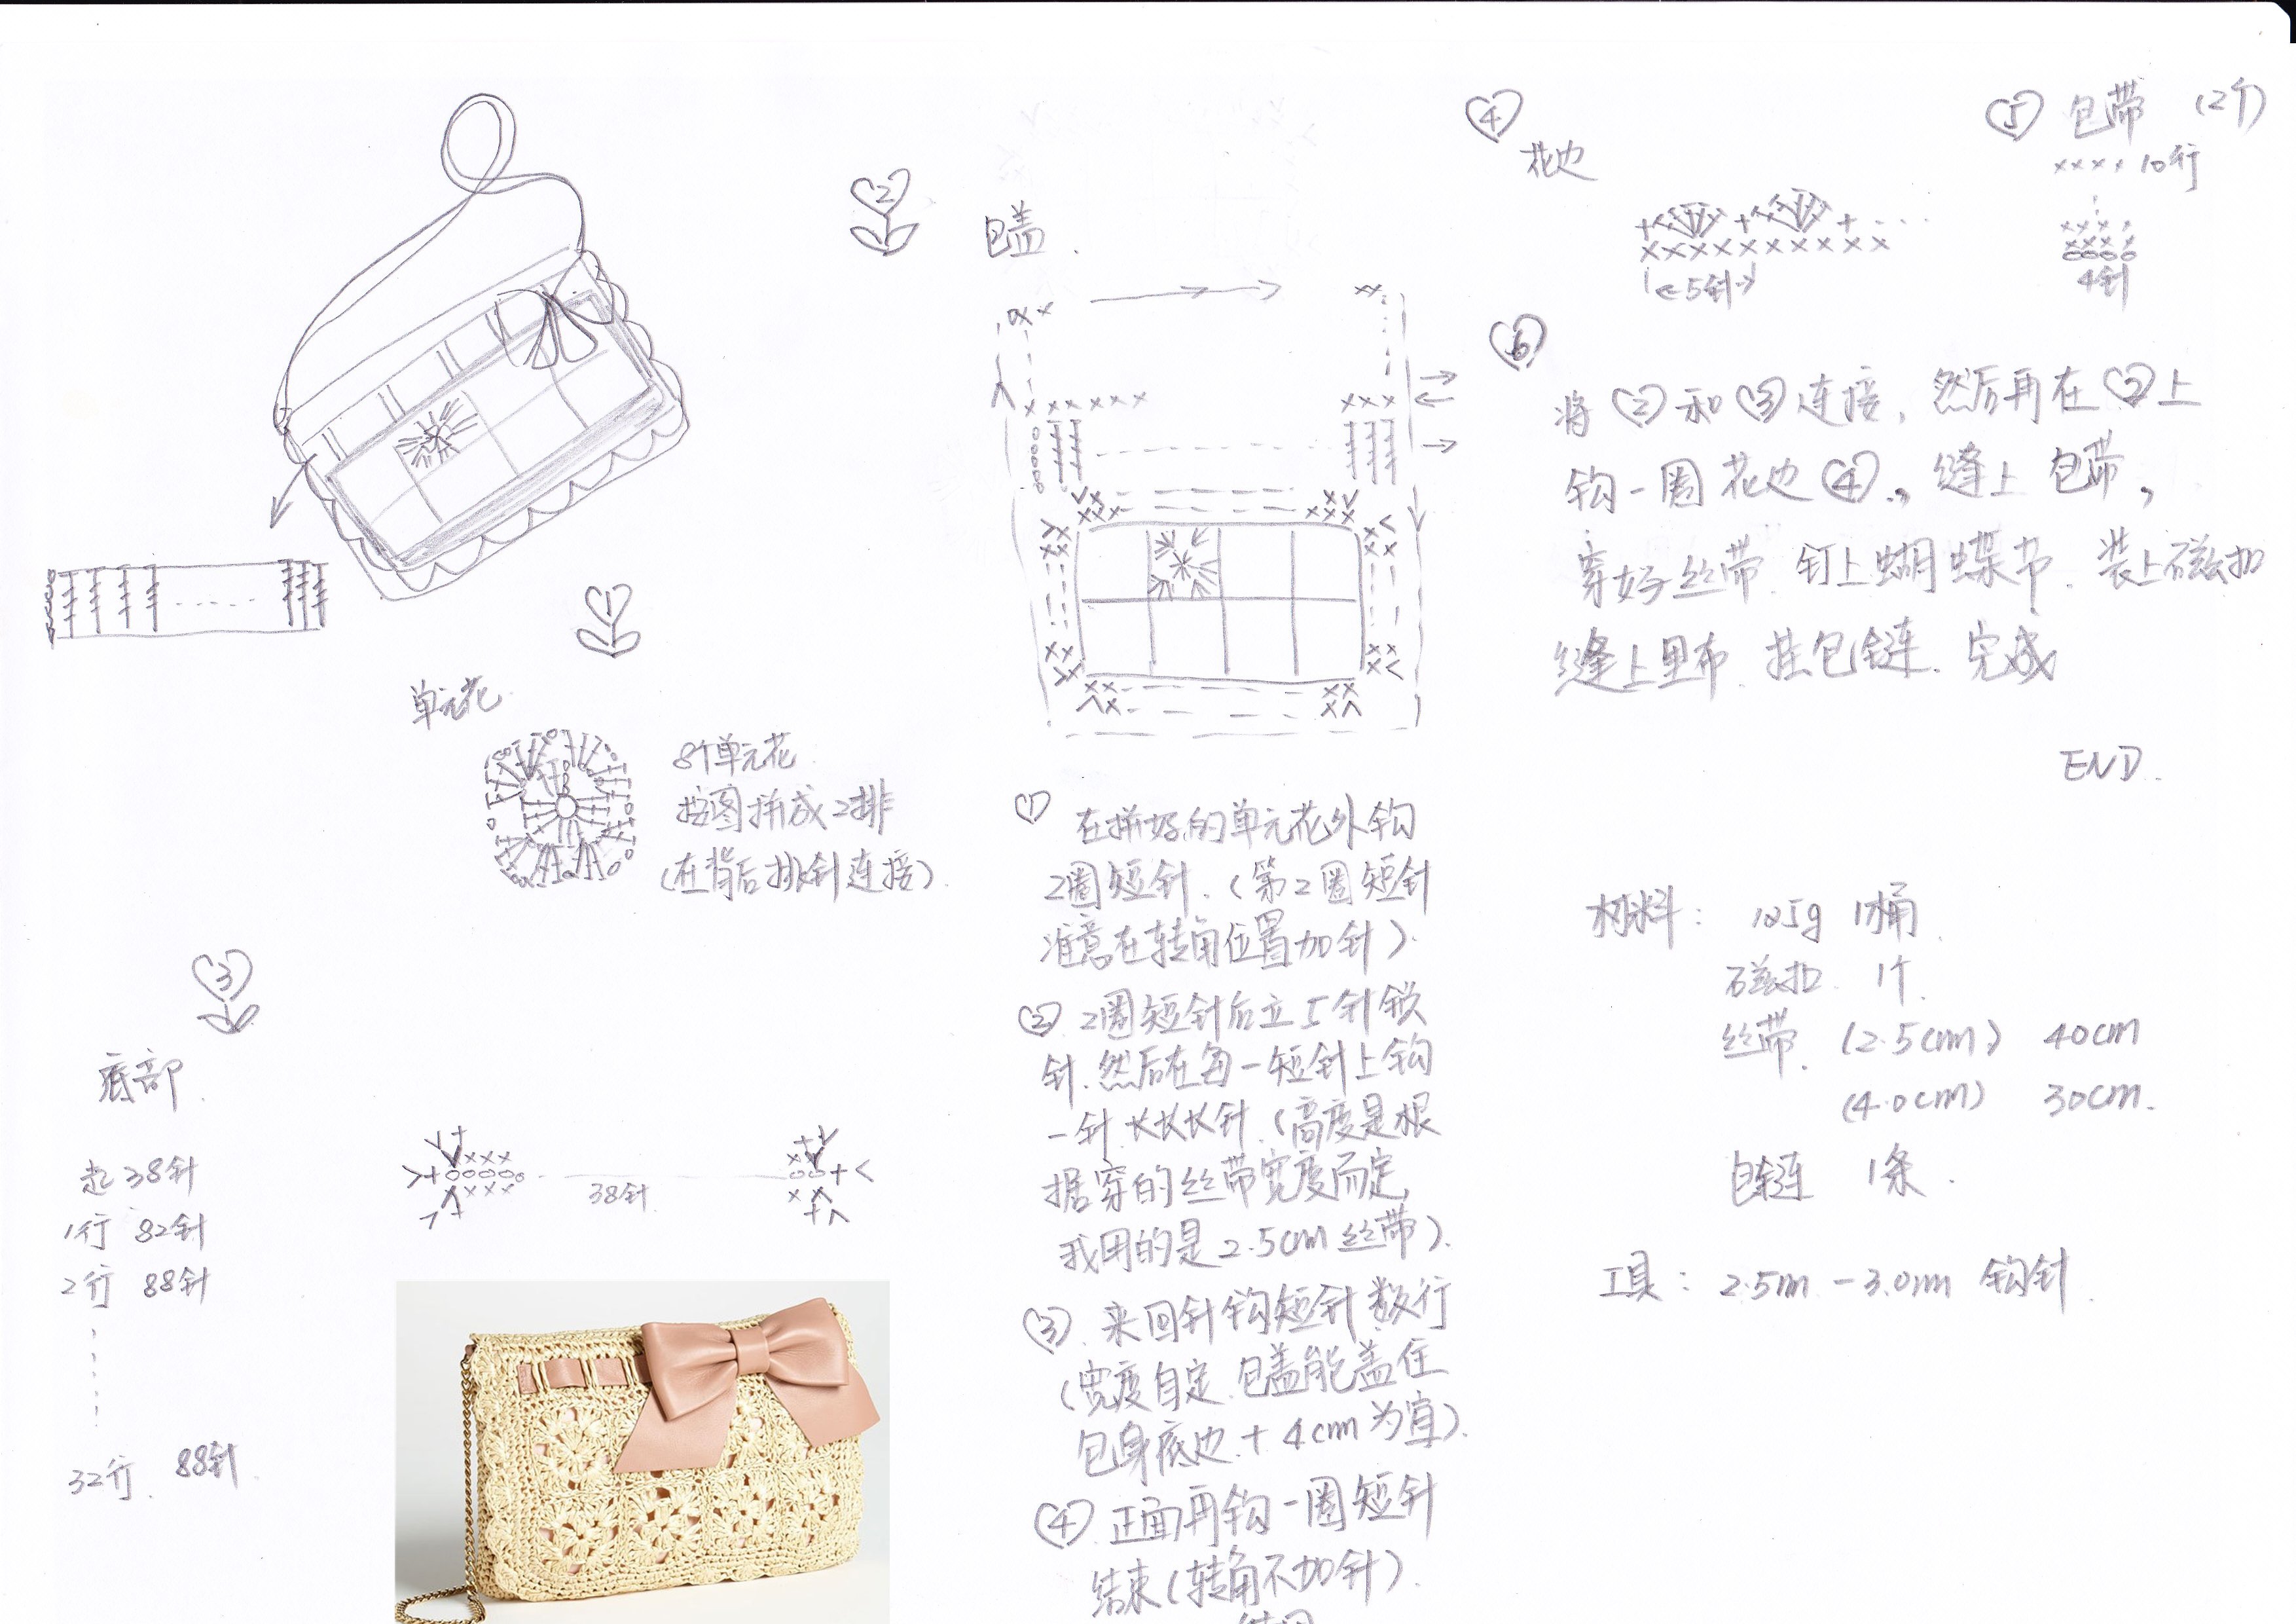 ①
单元花
8个单元花
按图拼成2排
(在背后挑针连接)
②
包盖.
① 在拼好的单元花外钩
2圈短针.(第2圈短针
准意在转角位置加针).
② 2圈短针后立5针锁
针.然后在每一短针上钩
一针长长长针.(高度是根
据穿的丝带宽度而定,
我用的是2.5cm丝带).
③.来回针钩短针数行
(宽度自定.包盖能盖住
包身底边+4cm为宜).
④.正面再钩一圈短针
结束(转角不加针).
③
底部.
起38针
1行 82针
2行 88针
32行. 88针
38针
④
花边
5针
⑤ 包带 (2个)
10行
4针
⑥
将②和③连接,然后再在②上
钩一圈花边④.,缝上包带,
穿好丝带.钉上蝴蝶节.装上磁扣
缝上里布.挂包链.完成
END.
材料: 125g 1桶.
磁扣. 1个.
丝带. (2.5cm) 40cm
(4.0cm) 30cm.
包链 1条.
工具: 2.5m-3.0mm 钩针.